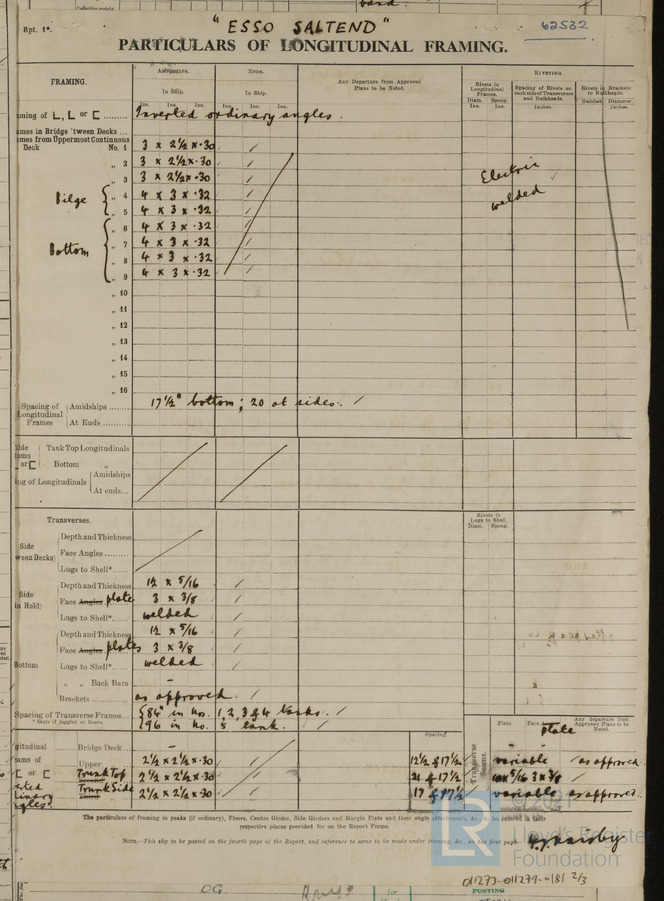 "ESSO SALTEND"
62532
Rpt. 1*.
PARTICULARS OF LONGITUDINAL FRAMING.
FRAMING.
AMIDSHIPS.
ENDS.
Any Departure from Approved Plans to be Noted.
RIVETING.
In Ship.
In Ship.
Rivets in Longitudinal Frames.
Spacing of Rivets on each side of Transverses and Bulkheads.
Rivets in Brackets to Bulkheads.
Ins. Ins. Ins. Ins. Ins. Ins.
Diam. Spcng.
Number. Diameter.
Ins. Ins. Ins. Inches.
aming of L, L, or [ Inverted ordinary angles.
ames in Bridge 'tween Decks ...
ames from Uppermost Continuous
Deck No. 1 3 x 2½ x ·30
„ 2 3 x 2½ x ·30
„ 3 3 x 2½ x ·30
Electric welded
Bilge „ 4 4 x 3 x ·32
„ 5 4 x 3 x ·32
Bottom „ 6 4 x 3 x ·32
„ 7 4 x 3 x ·32
„ 8 4 x 3 x ·32
„ 9 4 x 3 x ·32
„ 10
„ 11
„ 12
„ 13
„ 14
„ 15
„ 16
Spacing of Longitudinal Frames
Amidships ......... 17½" bottom; 20 at sides.
At Ends .........
Tank Top Longitudinals
Bottom „
ng of Longitudinals
Amidships
At ends...
Transverses.
Rivets in Lugs to Shell.
Diam. Spcng.
Side
ween Decks)
Depth and Thickness
Face Angles .........
Lugs to Shell*......
Side
in Hold)
Depth and Thickness 12 x 5/16
Face Angles plate 3 x 3/8
Lugs to Shell*...... welded
Bottom
Depth and Thickness 12 x 5/16
Face Angles plates 3 x 3/8
Lugs to Shell*...... welded
„ „ Back Bars –
Brackets......... as approved
Spacing of Transverse Frames... 84" in No. 1, 2, 3 & 4 tanks.
* State if joggled or liners. 96 in No. 5 tank.
Spacing.
Transverse Beams.
Plate. Face plate
Any departure from Approved Plans to be Noted.
gitudinal
Bridge Deck ... –
Upper 2½ x 2½ x ·30 12½ & 17½ variable as approved
Trunk Top 2½ x 2½ x ·30 21 & 17½ 10 x 5/16 3 x 3/8
Trunk Side 2½ x 2½ x ·30 17 & 17½ variable as approved.
The particulars of framing in peaks (if ordinary), Floors, Centre Girder, Side Girders and Margin Plate and their angle attachments, &c., to be entered in their
respective places provided for on the Report Forms.
NOTE.—This slip to be posted on the fourth page of the Report, and reference to same to be made under framing, &c., on the first page.
© 2021
LR
Lloyd's Register
Foundation
011273-011279-0181 2/3
O.G.
POSTING